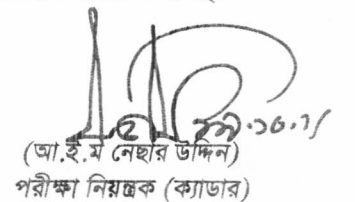 (আ.ই.ম নেছার উদ্দিন)
পরীক্ষা নিয়ন্ত্রক (ক্যাডার)